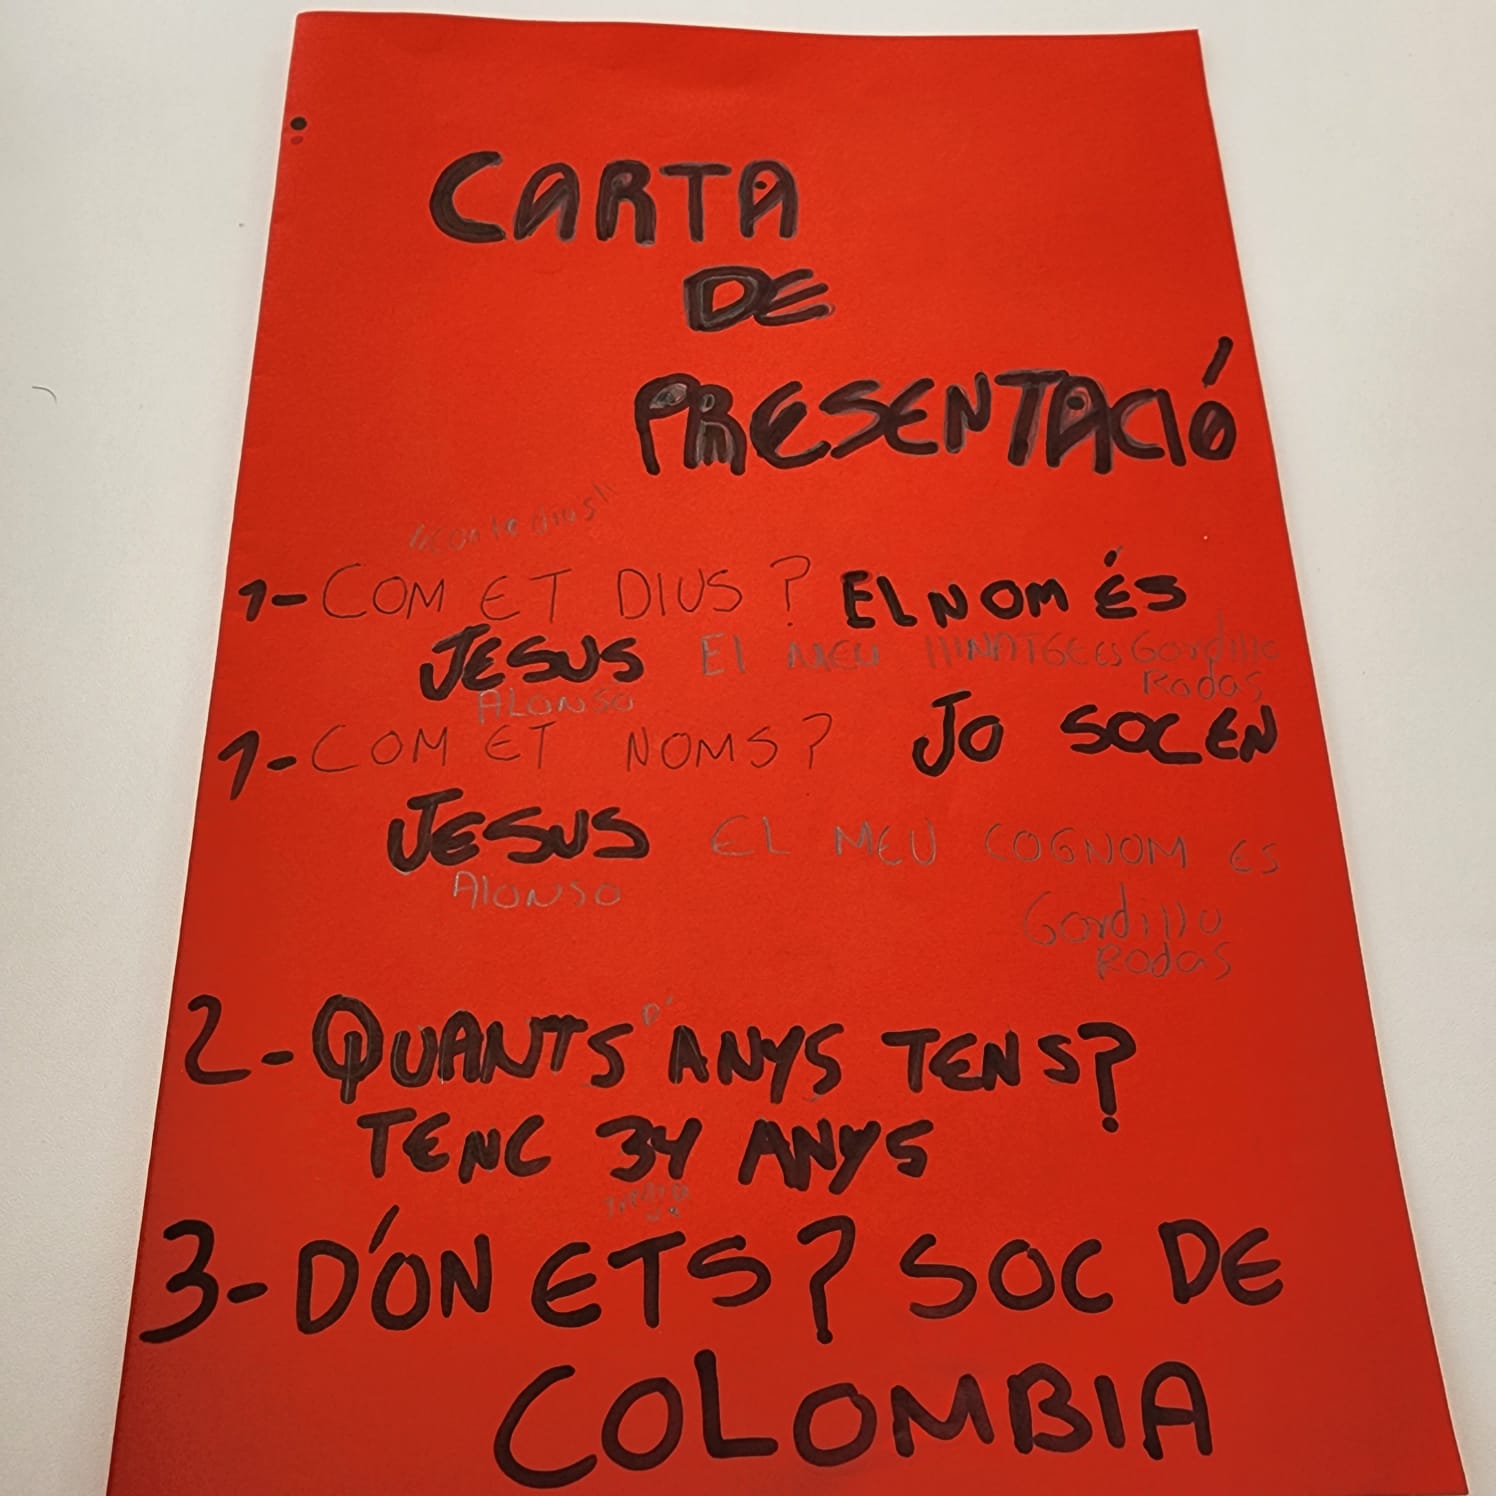 CARTA
DE
PRESENTACIÓ
"con te dius"
1- COM ET DIUS? EL NOM ÉS
JESUS El MEU lliNATGE es Gordillo
ALONSO Rodas
1- COM ET NOMS? JO SOC EN
JESUS EL MEU COGNOM ES
Alonso Gordillo
Rodas
2- QUANTS D' ANYS TENS?
TENC 34 ANYS
3- D'ON ETS? SOC DE
COLOMBIA